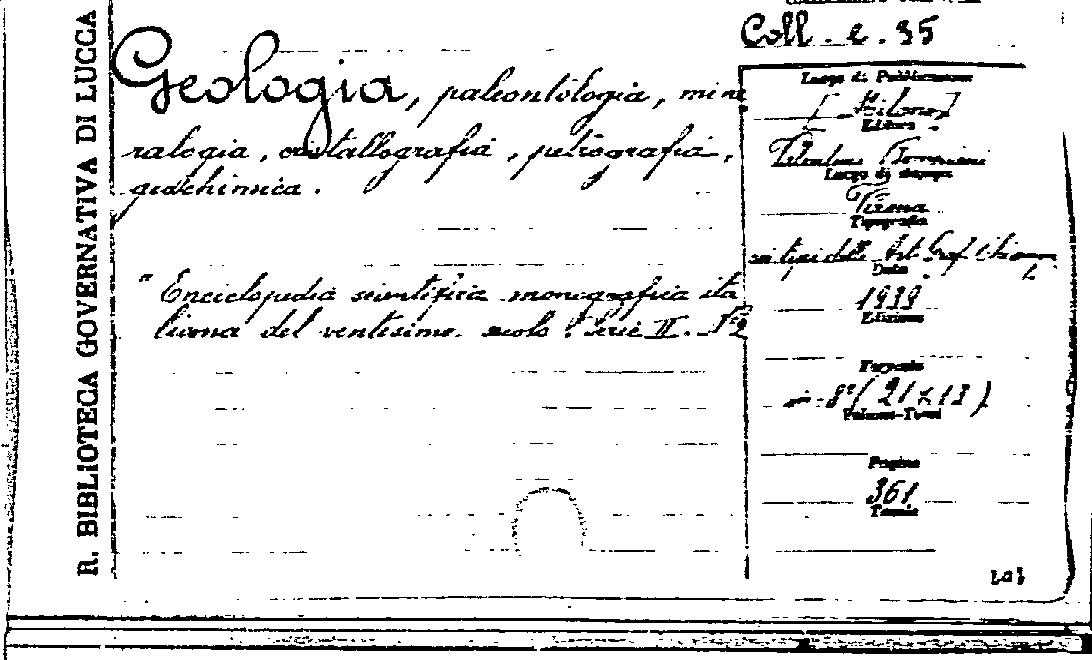 R. BIBLIOTECA GOVERNATIVA DI LUCCA
Coll. e. 35
Geologia, paleontologia, mine
ralogia, cristallografia, petrografia,
geochimica.
" Enciclopedia scientifica monografica ita
liana del ventesimo secolo. Serie II. N° 2
Luogo di Pubblicazione
[Milano]
Editore
Valentino Bompiani
Luogo di stampa
Tipografia
coi tipi delle Art. Graf.
Data
1939
Edizione
Formato
in-8° (21x13)
Volumi-Tomi
Pagine
361
Tavole